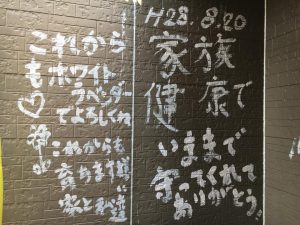 H28.8.20
家族
健康で
いままで
守ってくれて
ありがとう!!
これから
もホワイト
♡ラベンダー
でよろしくね
これからも
育ちます
家と私達